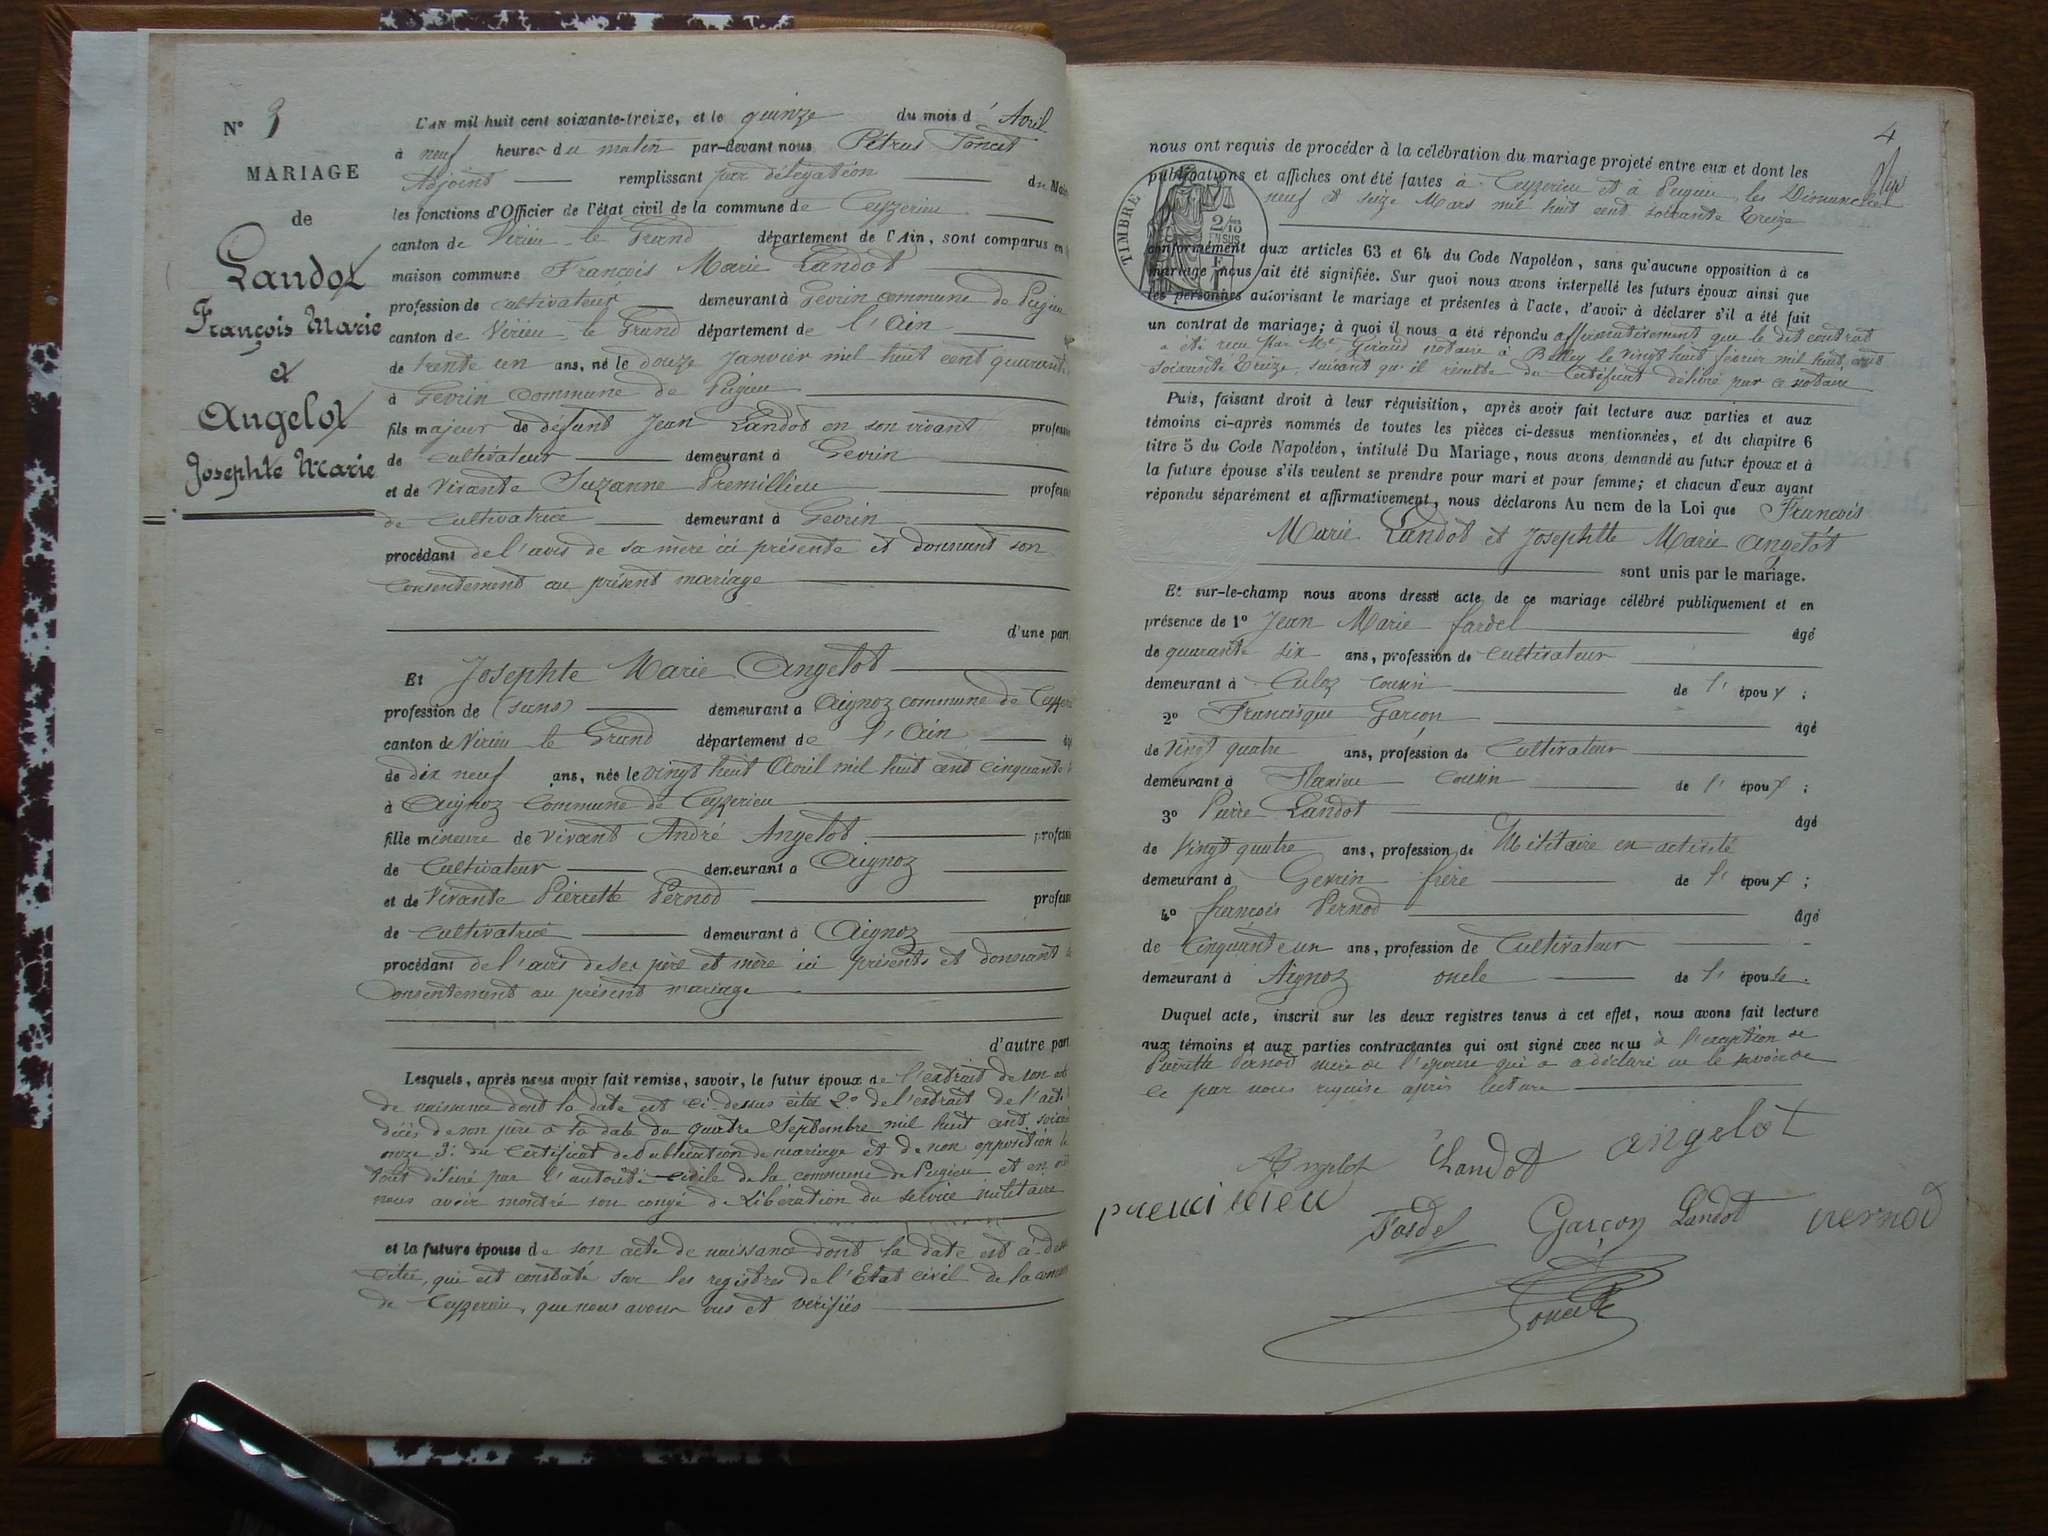 N° 3
MARIAGE
de
Landot
François Marie
et
Angelot
Josephte Marie
L'AN mil huit cent soixante-treize, et le quinze du mois d'Avril
à neuf heures du matin par-devant nous Pétrus Poncet
Adjoint remplissant par délégation du Maire
les fonctions d'Officier de l'état civil de la commune de Ceyzerieu
canton de Virieu-le Grand département de l'Ain, sont comparus en la
maison commune François Marie Landot
profession de cultivateur demeurant à Gevrin commune de Pugieu
canton de Virieu-le Grand département de l'Ain
de trente un ans, né le douze Janvier mil huit cent quarante
à Gevrin commune de Pugieu
fils majeur de défunt Jean Landot en son vivant profession
de cultivateur demeurant à Gevrin
et de vivante Suzanne Premillieu profession
de cultivatrice demeurant à Gevrin
procédant de l'avis de sa mère ici présente et donnant son
consentement au présent mariage
d'une part
Et Josephte Marie Angelot
profession de (sans) demeurant à Aignoz commune de Ceyzerieu
canton de Virieu le Grand département de l'Ain
de dix neuf ans, née le vingt huit Avril mil huit cent cinquante
à Aignoz Commune de Ceyzerieu
fille mineure de vivant André Angelot profession
de Cultivateur demeurant à Aignoz
et de Vivante Pierrette Pernod profession
de cultivatrice demeurant à Aignoz
procédant de l'avis de ses père et mère ici présents et donnant
consentement au présent mariage
d'autre part
Lesquels, après nous avoir fait remise, savoir, le futur époux de l'extrait de son acte
de naissance dont la date est ci-dessus citée 2° de l'extrait de l'acte
décès de son père à la date du quatre Septembre mil huit cent soixante
onze 3° du Certificat de Publication de mariage et de non opposition le
tout délivré par l'autorité civile de la commune de Pugieu et en outre
nous avoir montré son congé de Libération du service militaire
et la future épouse de son acte de naissance dont la date est ci-dessus
citée, qui est constaté sur les registres de l'Etat civil de la commune
de Ceyzerieu, que nous avons vus et vérifiés
4
nous ont requis de procéder à la célébration du mariage projeté entre eux et dont les
publications et affiches ont été faites à Ceyzerieu et à Pugieu les Dimanches
neuf et seize Mars mil huit cent soixante treize
TIMBRE
2/10 EN SUS
1 F
conformément aux articles 63 et 64 du Code Napoléon, sans qu'aucune opposition à ce
mariage nous ait été signifiée. Sur quoi nous avons interpellé les futurs époux ainsi que
les personnes autorisant le mariage et présentes à l'acte, d'avoir à déclarer s'il a été fait
un contrat de mariage; à quoi il nous a été répondu affirmativement que le dit contrat
a été reçu par Me Giraud notaire à Belley le vingt huit février mil huit cent
soixante treize, suivant qu'il résulte du Certificat délivré par ce notaire
Puis, faisant droit à leur réquisition, après avoir fait lecture aux parties et aux
témoins ci-après nommés de toutes les pièces ci-dessus mentionnées, et du chapitre 6
titre 5 du Code Napoléon, intitulé Du Mariage, nous avons demandé au futur époux et à
la future épouse s'ils veulent se prendre pour mari et pour femme; et chacun d'eux ayant
répondu séparément et affirmativement, nous déclarons Au nom de la Loi que François
Marie Landot et Josephtte Marie Angelot
sont unis par le mariage.
Et sur-le-champ nous avons dressé acte de ce mariage célébré publiquement et en
présence de 1° Jean Marie fardel âgé
de quarante six ans, profession de cultivateur
demeurant à Culoz cousin de l'époux ;
2° Francisque Garçon âgé
de vingt quatre ans, profession de Cultivateur
demeurant à Flaxieu cousin de l'époux ;
3° Pierre Landot âgé
de vingt quatre ans, profession de Militaire en activité
demeurant à Gevrin frère de l'époux ;
4° françois Pernod âgé
de cinquante un ans, profession de Cultivateur
demeurant à Aignoz oncle de l'épouse.
Duquel acte, inscrit sur les deux registres tenus à cet effet, nous avons fait lecture
aux témoins et aux parties contractantes qui ont signé avec nous à l'exception de
Pierrette Pernod mère de l'épouse qui a déclaré ne le savoir de
ce par nous requise après lecture
Angelot Landot angelot
premilieu Fardel Garçon Landot vernod
Poncet